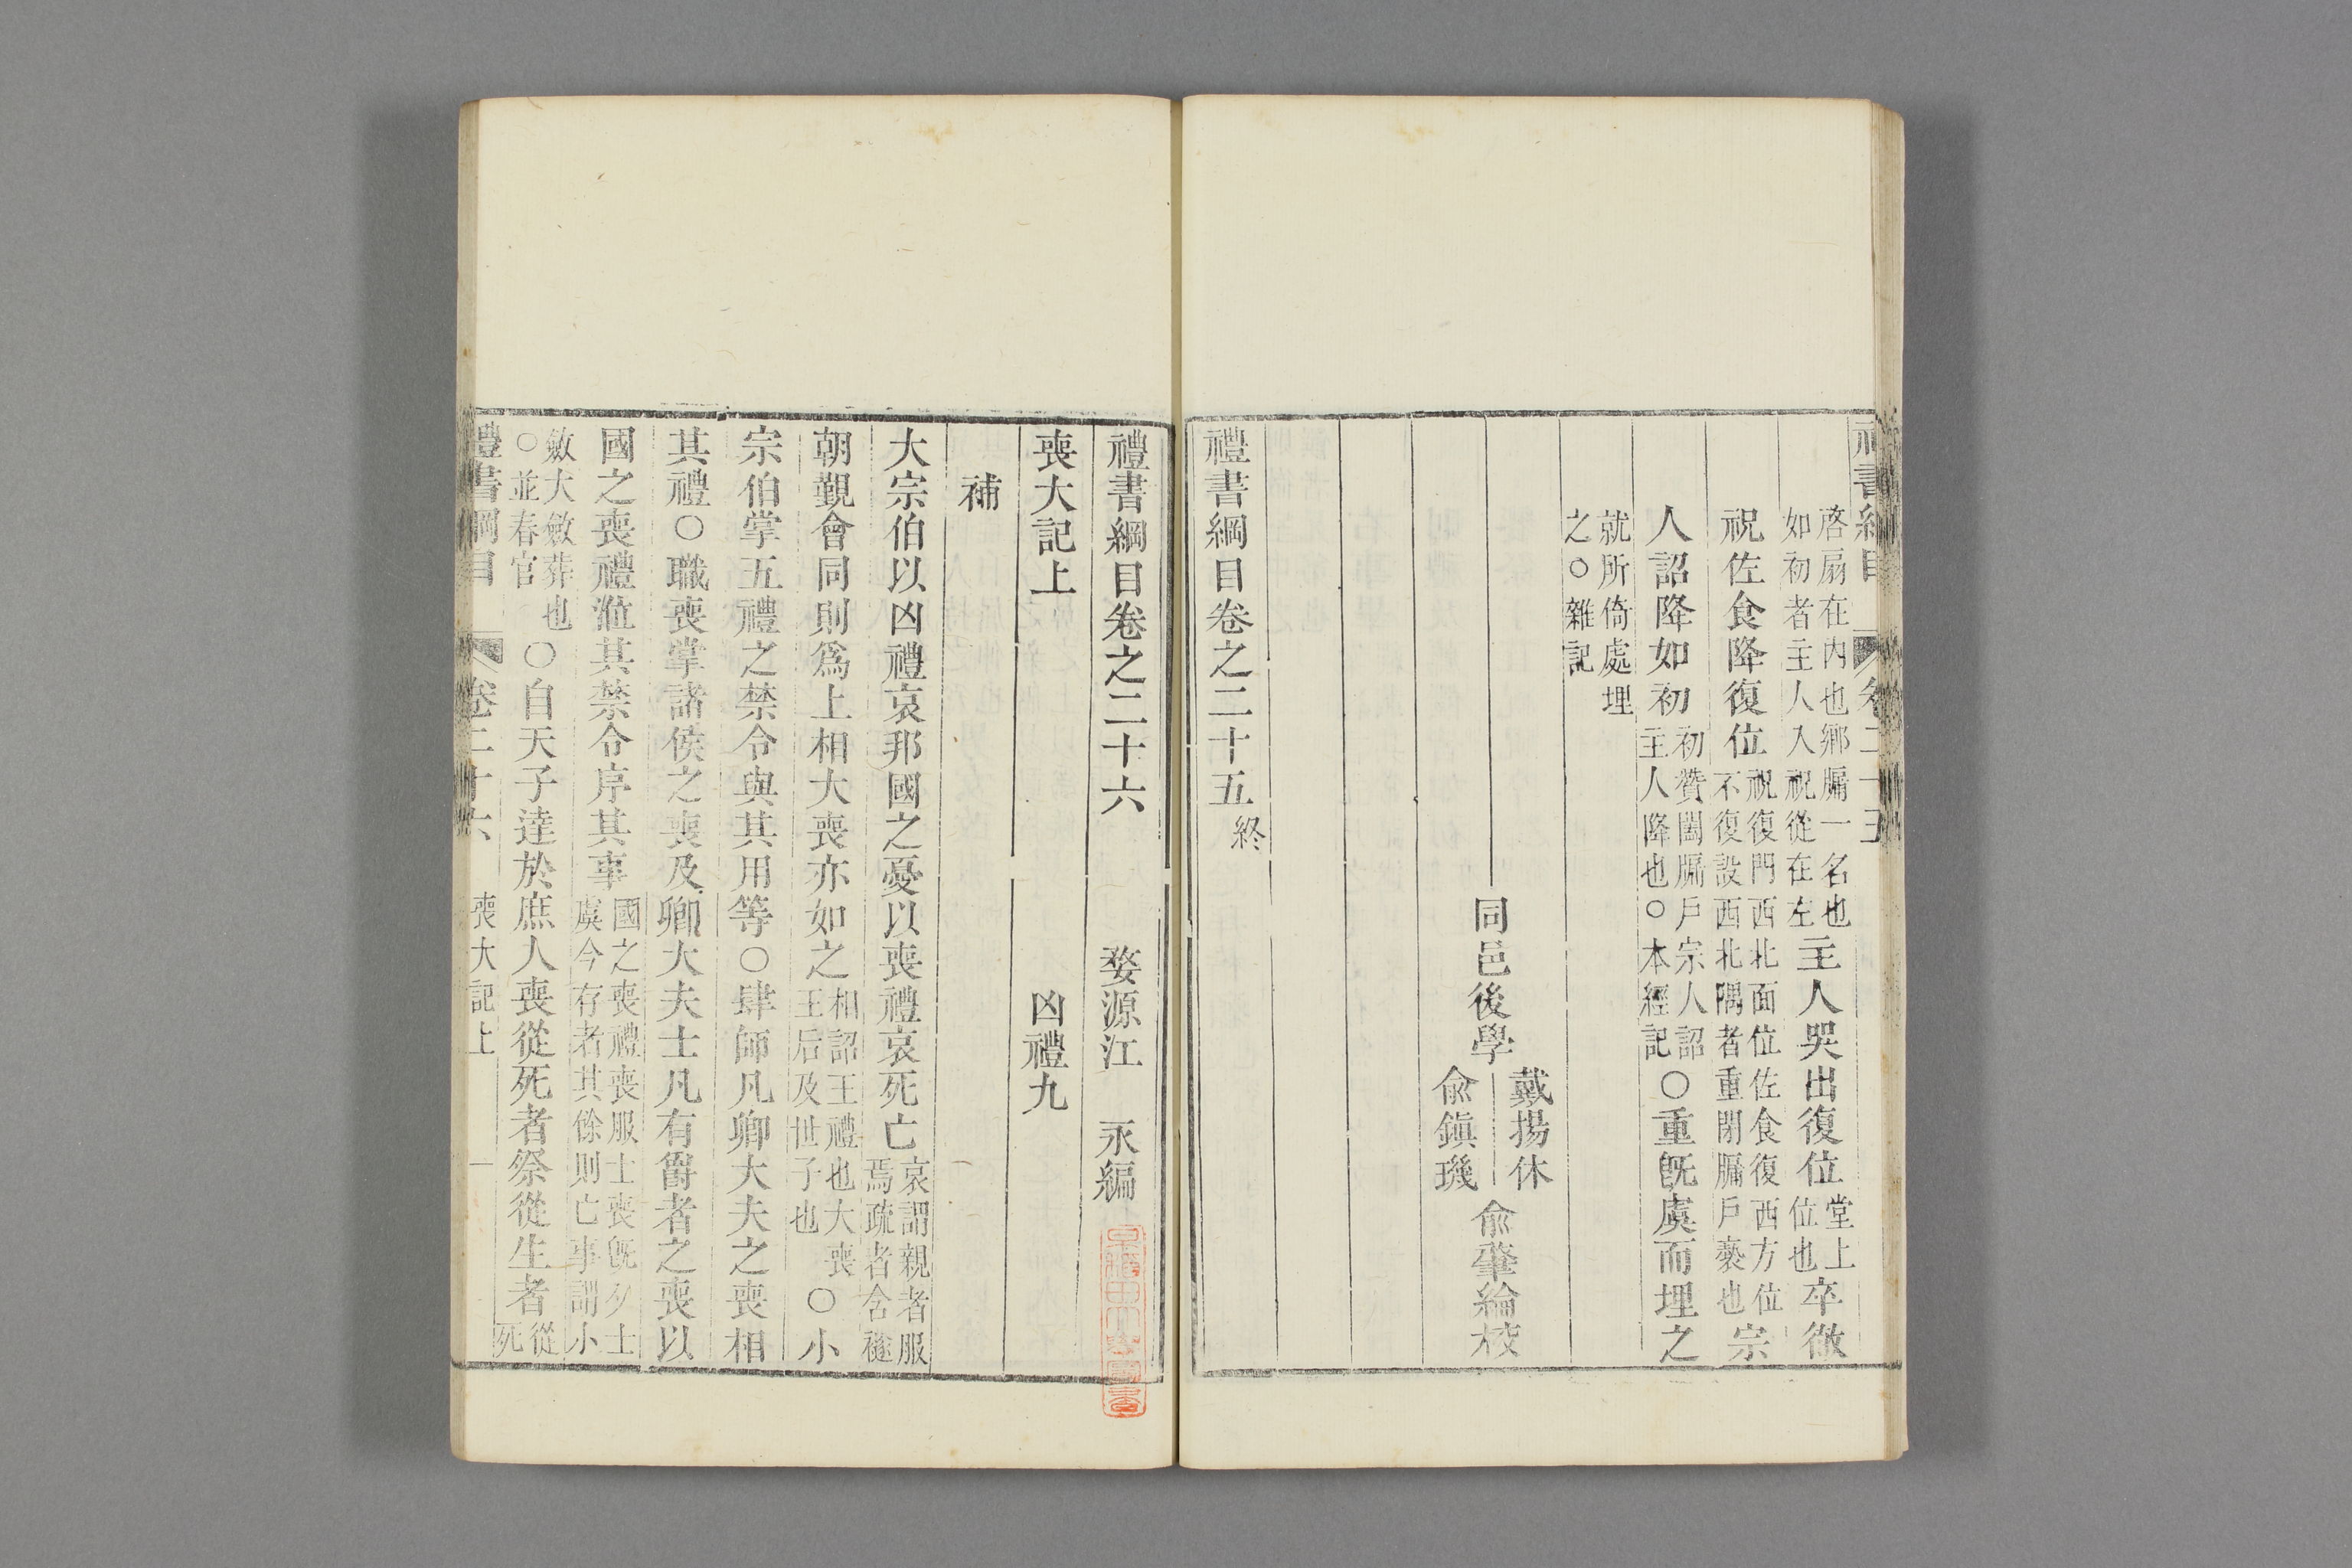 書綱目 卷二十五
啓扇在內也鄉牖一名也
如初者主人入祝從在左主人哭出復位堂上
位也卒徹
祝佐食降復位祝復門西北面位佐食復西方位
不復設西北隅者重閉牖戶褻也宗
人詔降如初初贊闔牖戶宗人詔
主人降也○本經記○重旣虞而埋之
就所倚處埋
之○雜記
同邑後學戴揚休
俞鎮璣俞肇綸校
禮書綱目卷之二十五終
禮書綱目卷之二十六 婺源江 永編
喪大記上 凶禮九
補
大宗伯以凶禮哀邦國之憂以喪禮哀死亡哀謂親者服
焉疏者含襚
朝覲會同則爲上相大喪亦如之相詔王禮也大喪
王后及世子也○小
宗伯掌五禮之禁令與其用等○肆師凡卿大夫之喪相
其禮○職喪掌諸侯之喪及卿大夫士凡有爵者之喪以
國之喪禮涖其禁令序其事國之喪禮喪服士喪旣夕士
虞今存者其餘則亡事謂小
斂大斂葬也
○並春官○自天子達於庶人喪從死者祭從生者從
死
禮書綱目 卷二十六 喪大記上 一